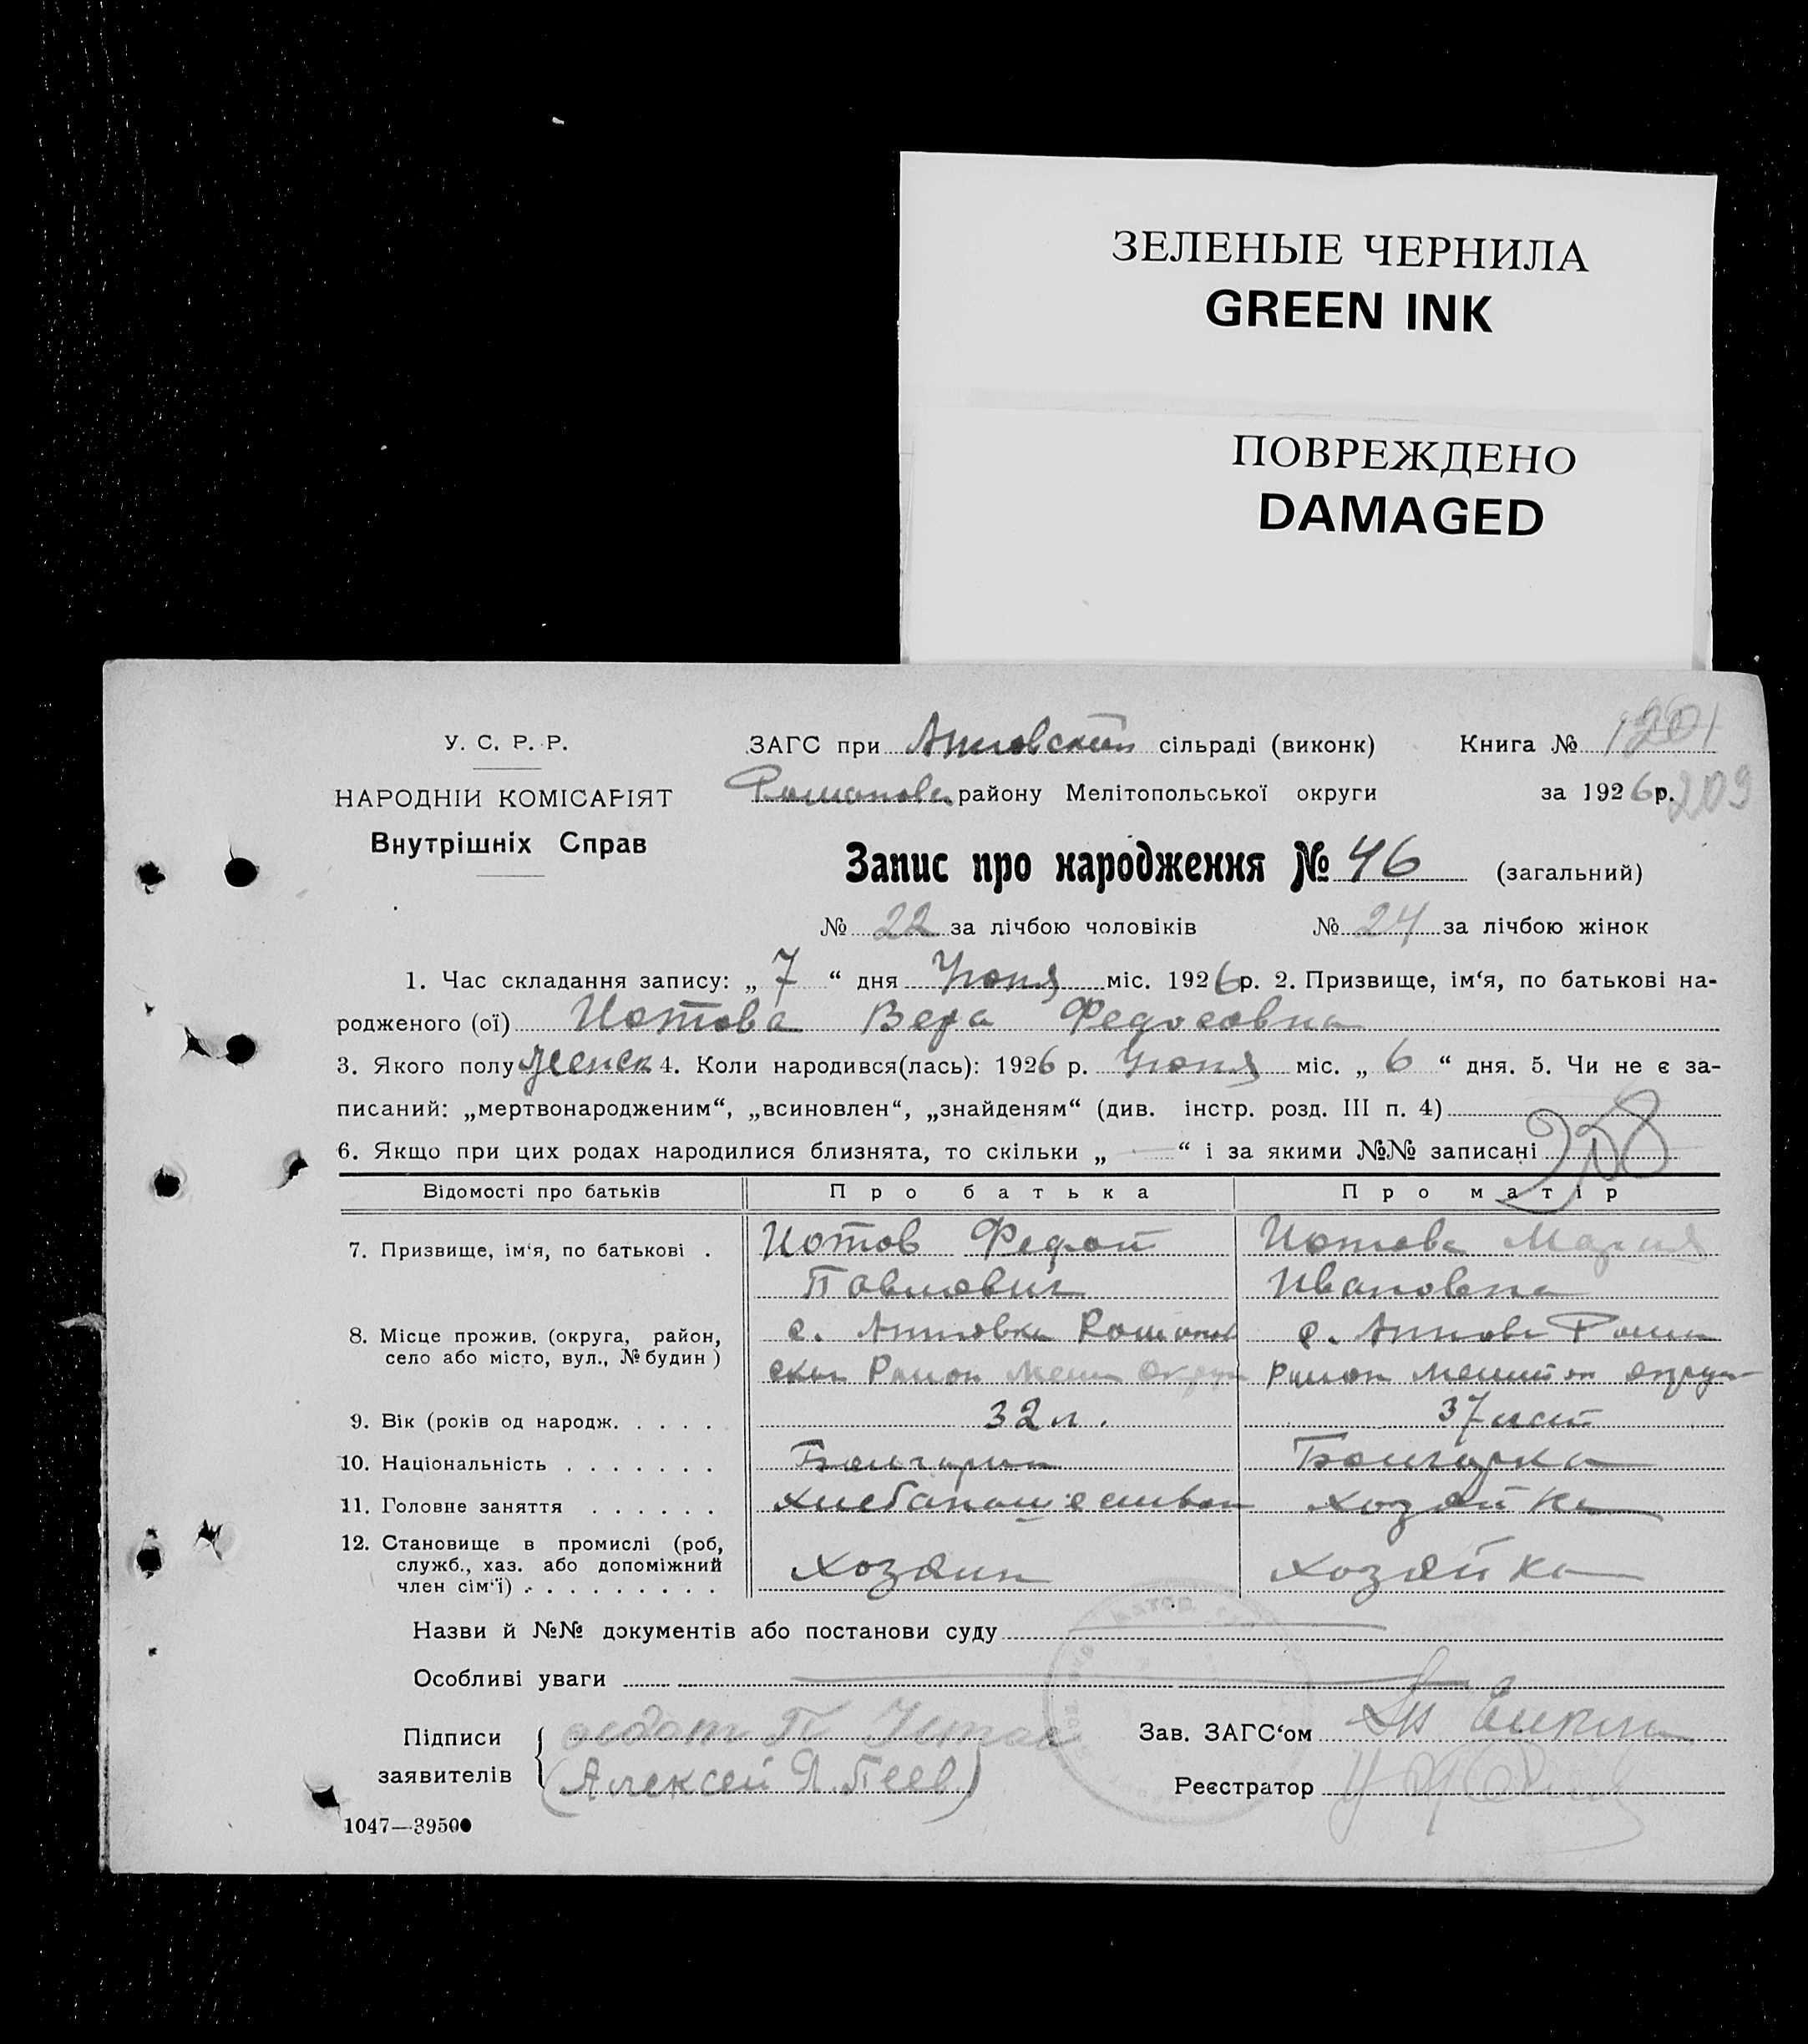 ЗЕЛЕНЫЕ ЧЕРНИЛА
GREEN INK
ПОВРЕЖДЕНО
DAMAGED
У. С. Р. Р.
НАРОДНІЙ КОМІСАРІЯТ
Внутрішніх Справ
ЗАГС при сільраді (виконк) Книга №
району Мелітопольської округи за 1926 р. 209
Запис про народження № 46 (загальний)
№ 22 за лічбою чоловіків № 24 за лічбою жінок
1. Час складання запису: „ 7 “ дня Июня міс. 1926 р. 2. Призвище, ім'я, по батькові на-
родженого (ої) Иотова Вера Федосовна
3. Якого полу женск 4. Коли народився(лась): 1926 р. Июня міс. „ 6 “ дня. 5. Чи не є за-
писаний: „мертвонародженим“, „всиновлен“, „знайденям“ (див. інстр. розд. III п. 4)
6. Якщо при цих родах народилися близнята, то скільки „ — “ і за якими №№ записані
208
Відомості про батьків Про батька Про матір
7. Призвище, ім'я, по батькові . Иотов Федот Иотова Мария
Павлович Ивановна
8. Місце прожив. (округа, район, с. Анновка с.
село або місто, вул., № будин ) Район Район
9. Вік (років од народж. . . . . 32 л. 37 лет
10. Національність . . . . . . . Болгарин Болгарка
11. Головне заняття . . . . . . хозяйка
12. Становище в промислі (роб,
служб., хаз. або допоміжний Хозяин хозяйка
член сім'ї) . . . . . . . . . .
Назви й №№ документів або постанови суду
Особливі уваги
Підписи Зав. ЗАГС'ом
заявителів (Алексей Я. Пеев) Реєстратор
1047—39500